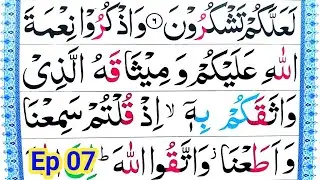 لَعَلَّكُمْ تَشْكُرُوْنَ ﴿۶﴾ وَاذْكُرُوْا نِعْمَةَ
اللّٰهِ عَلَيْكُمْ وَ مِيْثَاقَهُ الَّذِىْ
وَاثَقَكُمْ بِهٖۤ ۙ اِذْ قُلْتُمْ سَمِعْنَا
وَ اَطَعْنَا ؗ وَاتَّقُوا اللّٰهَ ؕ
Ep 07